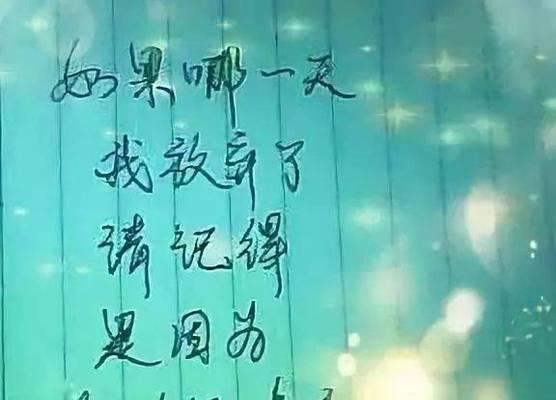 如果哪一天
我放弃了
请记得
是因为